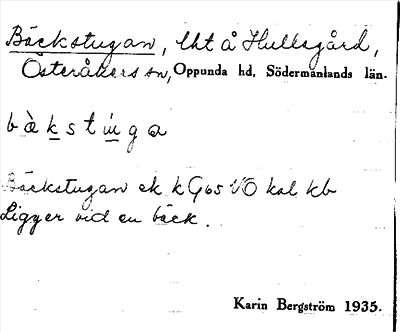 Bäckstugan, lht å Hullsgård,
Österåkers sn, Oppunda hd, Södermanlands län.
bàkstuga
Bäckstugan ek k G65 VO kal kb
Ligger vid en bäck.
Karin Bergström 1935.